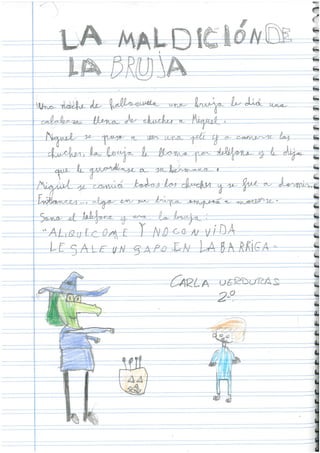 LA MALDICIÓN DE
LA BRUJA
Una noche de halloween una bruja le dió una
calabaza llena de chuches a Miguel.
Miguel se puso a ver una peli y a comerse las
chuches. La bruja le llamo por teléfono y le dijo
que le guardase a su hermano.
Miguel se comió todas las chuches y se fue a dormir...
Entonces... algo en su tripa empezó a moverse.
Sonó el teléfono y era la bruja:
"AL QUE COME Y NO CONVIDA
LE SALE UN SAPO EN LA BARRIGA.
CARLA VERDURAS
2.º